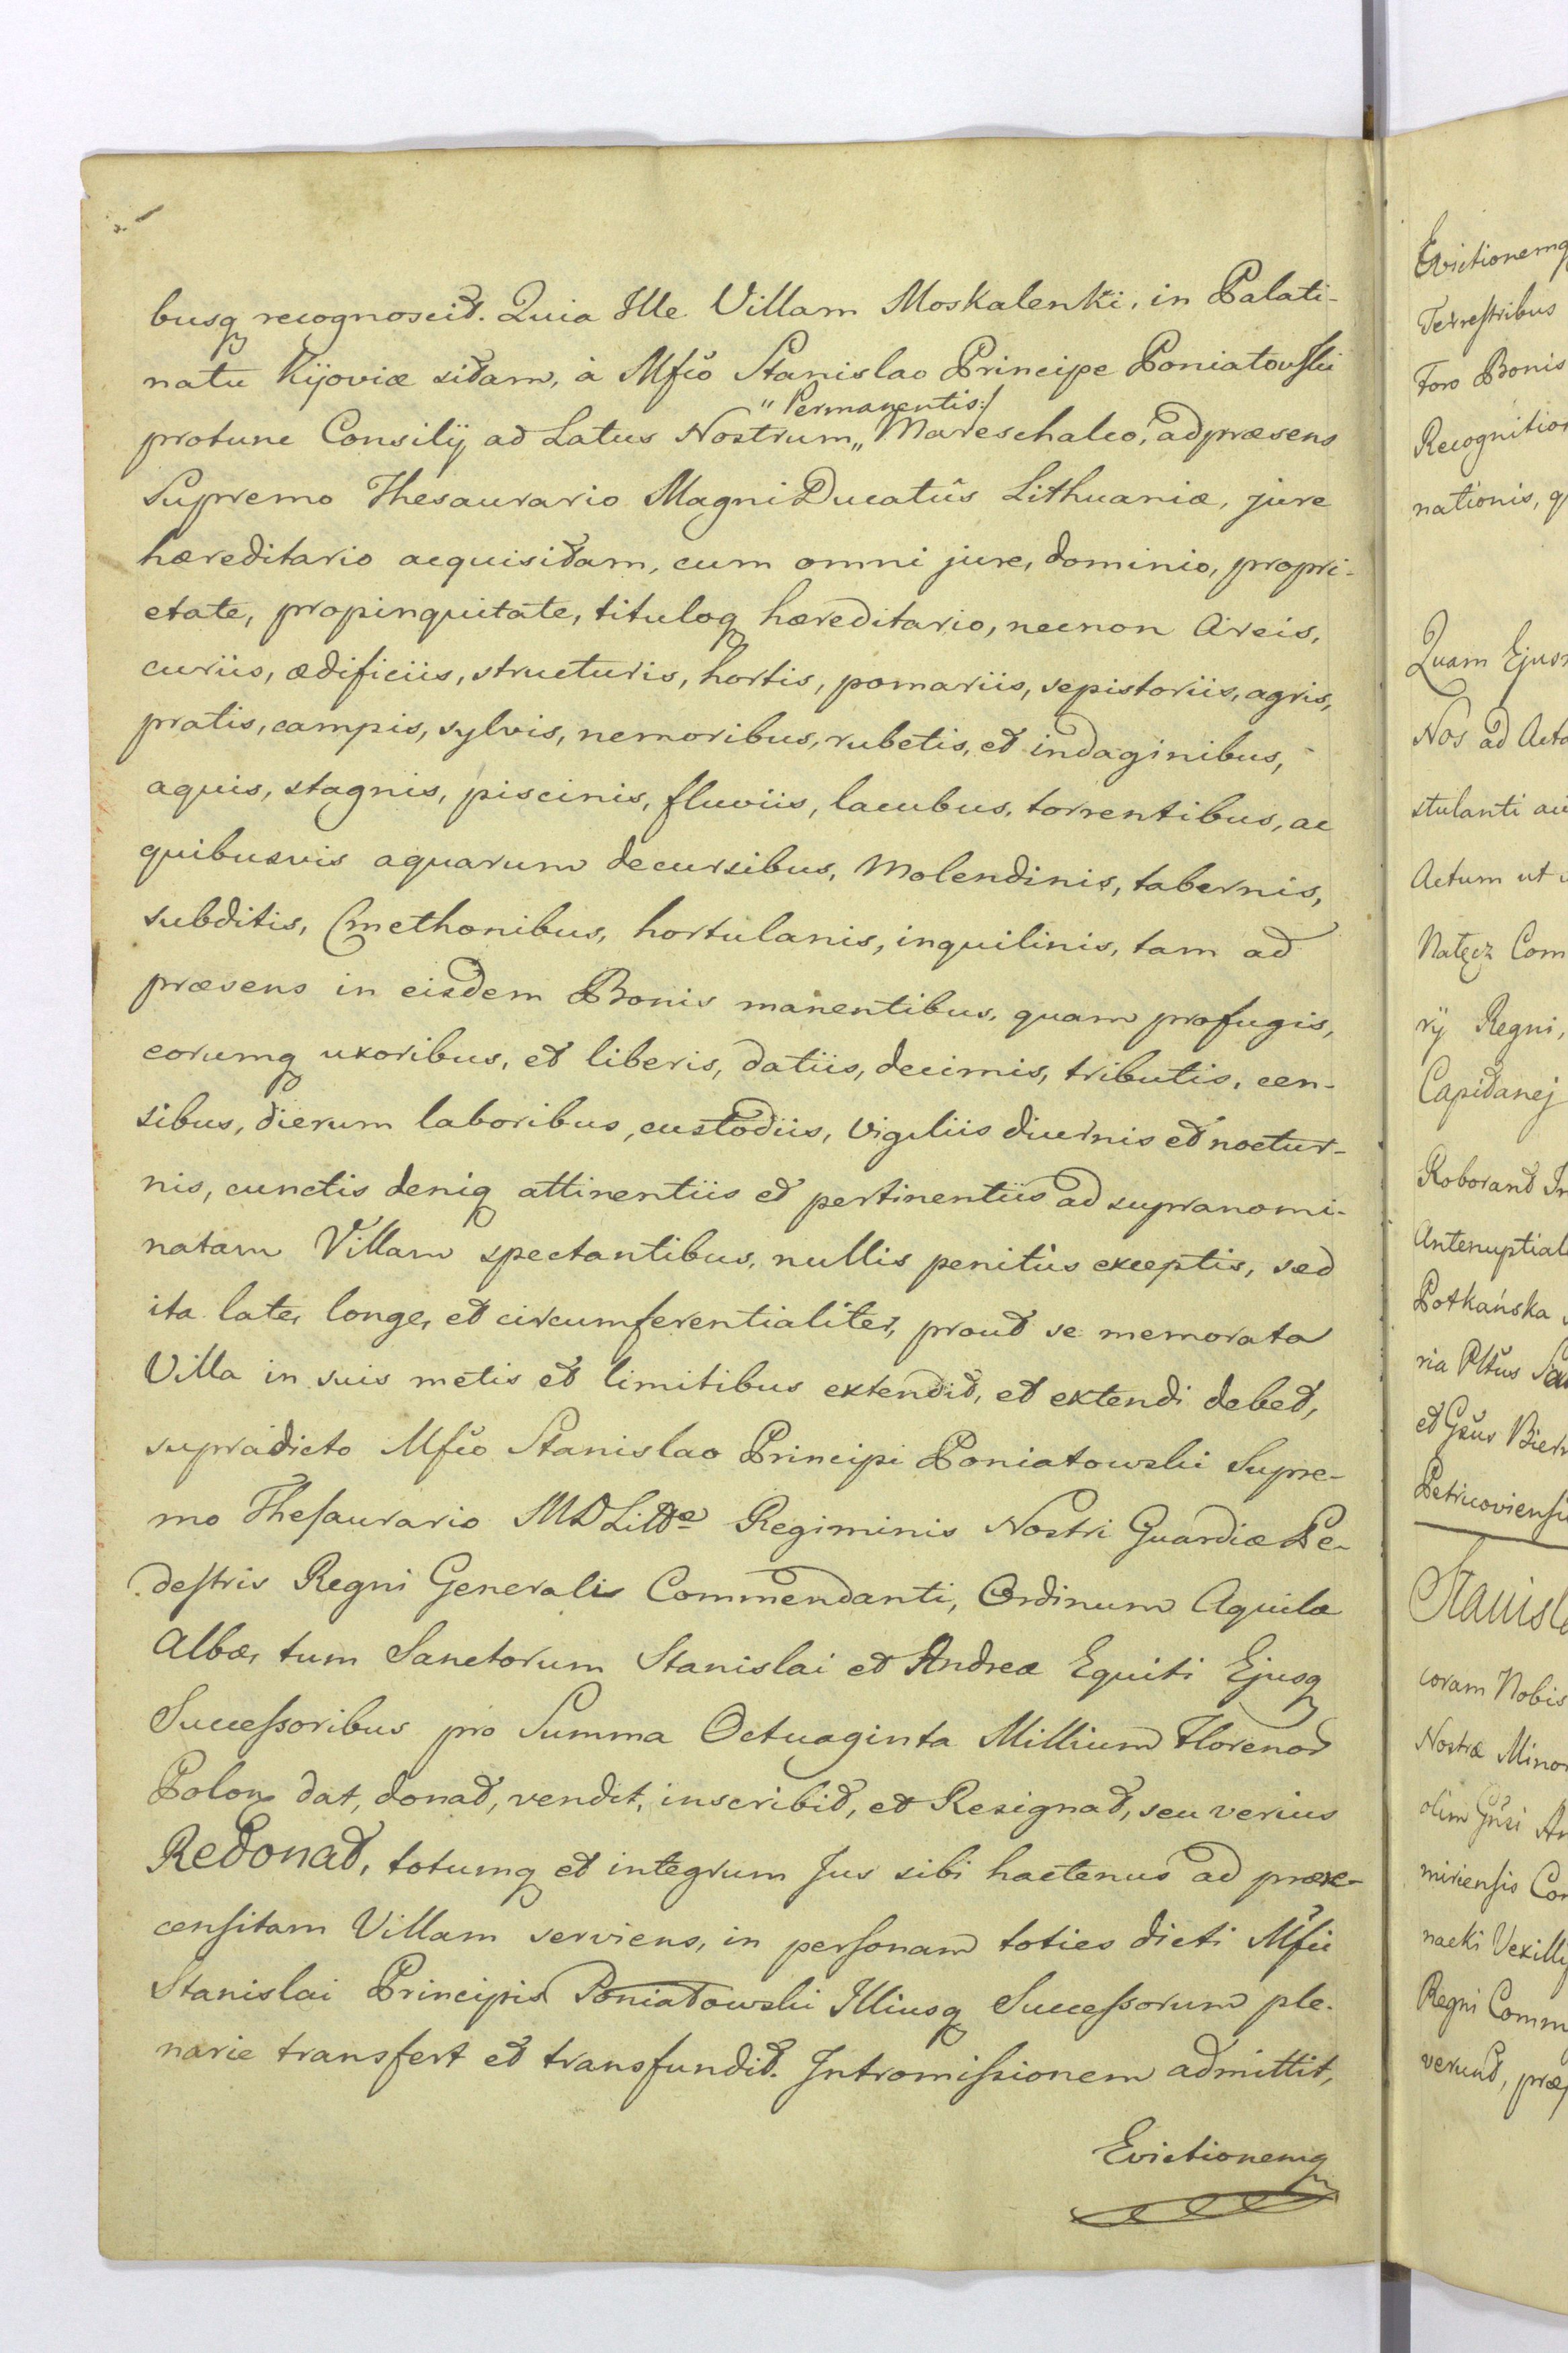 busq recognoscit. Quia Ille Villam Moskalenki, in Palati-
natu Kijoviæ sitam, à Mfco Stanislao Principe Poniatowski
" Permanentis:/
protunc Consilij ad Latus Nostrum,, Mareschalco, ad præsens
Supremo Thesaurario Magni Ducatûs Lithuaniæ, jure
hæreditario acquisitam, cum omni jure, dominio, propri-
etate, propinquitate, tituloq hæreditario, necnon areis,
curiis, ædificiis, structuris, hortis, pomariis, sepistoriis, agris,
pratis, campis, sylvis, nemoribus, rubetis, et indaginibus,
aquis, stagnis, piscinis, fluviis, lacubus, torrentibus, ac
quibusvis aquarum decursibus, Molendinis, tabernis,
subditis, Cmethonibus, hortulanis, inquilinis, tam ad
præsens in eisdem Bonis manentibus, quam profugis,
eorumq uxoribus, et liberis, datiis, decimis, tributis, cen-
sibus, dierum laboribus, custodiis, Vigiliis diurnis et noctur-
nis, cunctis deniq attinentiis et pertinentiis ad supranomi-
natam Villam spectantibus, nullis penitùs exceptis, sed
ita late, longe, et circumferentialiter, prout se memorata
Villa in suis metis et limitibus extendit, et extendi debet,
supradicto Mfco Stanislao Principi Poniatowski Supre-
mo Thesaurario MD Litt Regiminis Nostri Guardiæ Pe-
destris Regni Generalis Commendanti, Ordinum Aquilæ
Albæ, tum Sanctorum Stanislai et Andreæ Equiti Ejusq
Successoribus pro Summa Octuaginta Millium Florenor
Polon dat, donat, vendit, inscribit, et Resignat, seu verius
Redonat, totumq et integrum Jus sibi hactenus ad prære-
censitam Villam serviens, in personam toties dicti Mfci
Stanislai Principis Poniatowski Illiusq Successorum ple-
narie transfert et transfundit. Intromissionem admittit,
Evictionemq
Evictionemq
Terrestribus
Foro Bonis
nationis,
Quam
Nos ad
stulanti
Actum ut
Natęcz Com
rij Regni,
Capitanej
Roborant
Potkańska
ria
et
coram Nobis
Nostræ
olim
naeki
Regni
verunt,